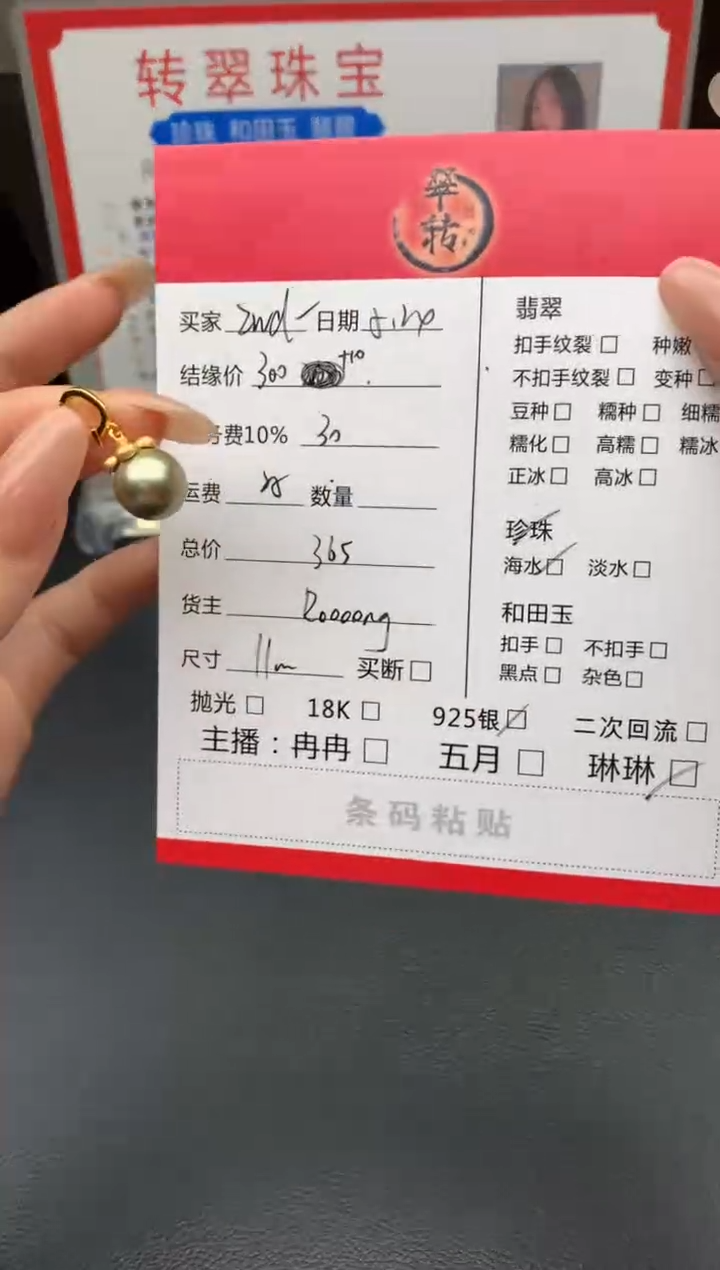 转翠珠宝
珍珠 和田玉 翡翠
翠转
买家 2nd 日期
结缘价 300 +10
费10% 30
运费 数量
总价 365
货主 Rooooong
尺寸 11m 买断□
翡翠
扣手纹裂□ 种嫩
不扣手纹裂□ 变种□
豆种□ 糯种□ 细糯
糯化□ 高糯□ 糯冰
正冰□ 高冰□
珍珠
海水☑ 淡水□
和田玉
扣手□ 不扣手□
黑点□ 杂色□
抛光□ 18K□ 925银☑ 二次回流□
主播：冉冉□ 五月□ 琳琳☑
条码粘贴